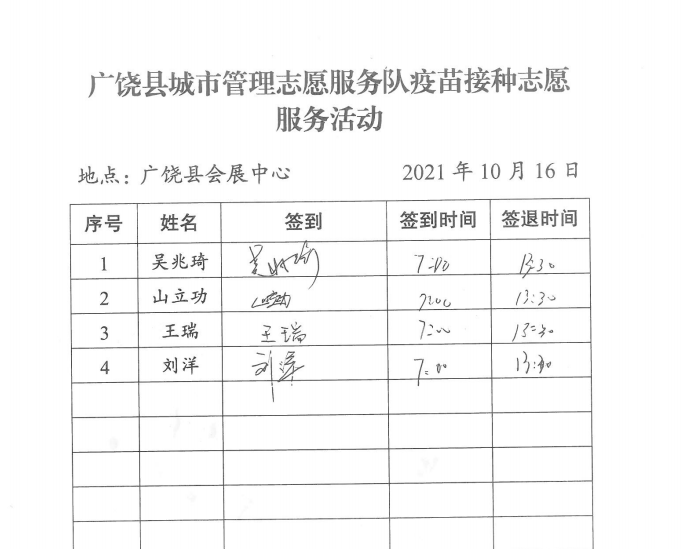 广饶县城市管理志愿服务队疫苗接种志愿
服务活动
地点：广饶县会展中心 2021 年 10 月 16 日
序号 姓名 签到 签到时间 签退时间
1 吴兆琦 吴兆琦 7:00 13:30
2 山立功 山立功 7:00 13:30
3 王瑞 王瑞 7:00 13:30
4 刘洋 刘洋 7:00 13:30